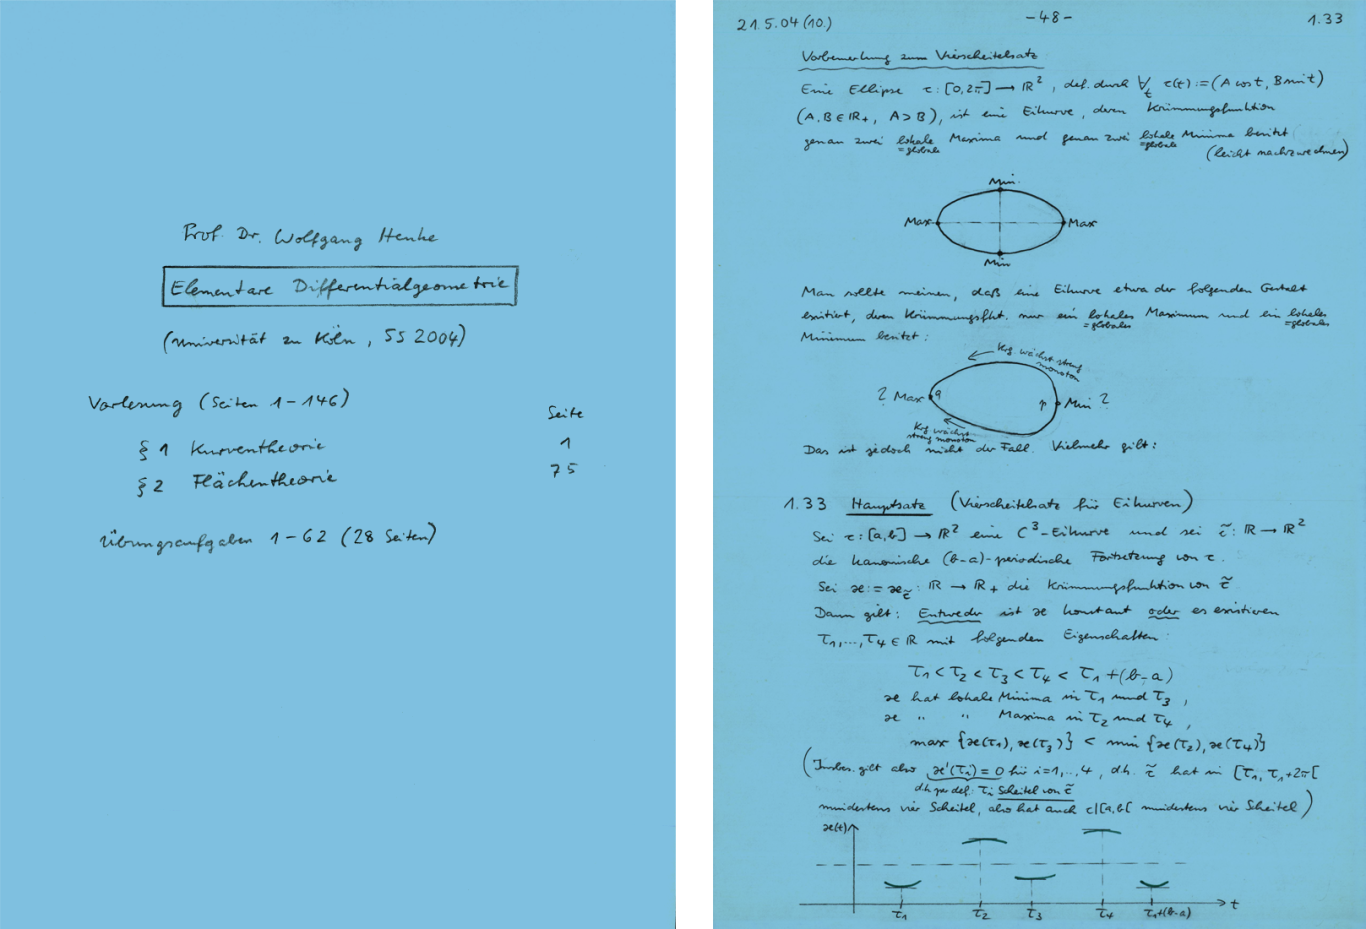 Prof. Dr. Wolfgang Henke
Elementare Differentialgeometrie
(Universität zu Köln, SS 2004)
Vorlesung (Seiten 1-146)
Seite
§ 1 Kurventheorie 1
§ 2 Flächentheorie 75
Übungsaufgaben 1-62 (28 Seiten)
21.5.04 (10.) -48- 1.33
Vorbemerkung zum Vierscheitelsatz
Eine Ellipse c : [0,2π] → ℝ², def. durch ∀t c(t) := (A cos t, B sin t)
(A, B ∈ ℝ+, A > B), ist eine Eikurve, deren Krümmungsfunktion
genau zwei lokale Maxima und genau zwei lokale Minima besitzt
=globale =globale (leicht nachzurechnen)
Min
Max Max
Min
Man sollte meinen, daß eine Eikurve etwa der folgenden Gestalt
existiert, deren Krümmungsfkt. nur ein lokales Maximum und ein lokales
=globales =globales
Minimum besitzt:
Krg. wächst streng
monoton
? Max q p Min ?
Krg. wächst
streng monoton
Das ist jedoch nicht der Fall. Vielmehr gilt:
1.33 Hauptsatz (Vierscheitelsatz für Eikurven)
Sei c : [a,b] → ℝ² eine C³-Eikurve und sei c̃ : ℝ → ℝ²
die kanonische (b-a)-periodische Fortsetzung von c.
Sei æ := æ_c̃ : ℝ → ℝ+ die Krümmungsfunktion von c̃
Dann gilt: Entweder ist æ konstant oder es existieren
τ1,...,τ4 ∈ ℝ mit folgenden Eigenschaften:
τ1 < τ2 < τ3 < τ4 < τ1 + (b-a)
æ hat lokale Minima in τ1 und τ3,
æ " " Maxima in τ2 und τ4,
max {æ(τ1), æ(τ3)} < min {æ(τ2), æ(τ4)}
(Insbes. gilt also æ'(τi) = 0 für i=1,...,4, d.h. c̃ hat in [τ1, τ1+2π[
d.h. per def. τi Scheitel von c̃
mindestens vier Scheitel, also hat auch c|[a,b[ mindestens vier Scheitel)
æ(t)
t
τ1 τ2 τ3 τ4 τ1+(b-a)